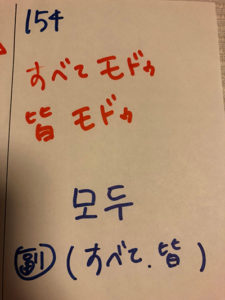 154
すべて モドゥ
皆 モドゥ
모두
副 (すべて.皆)